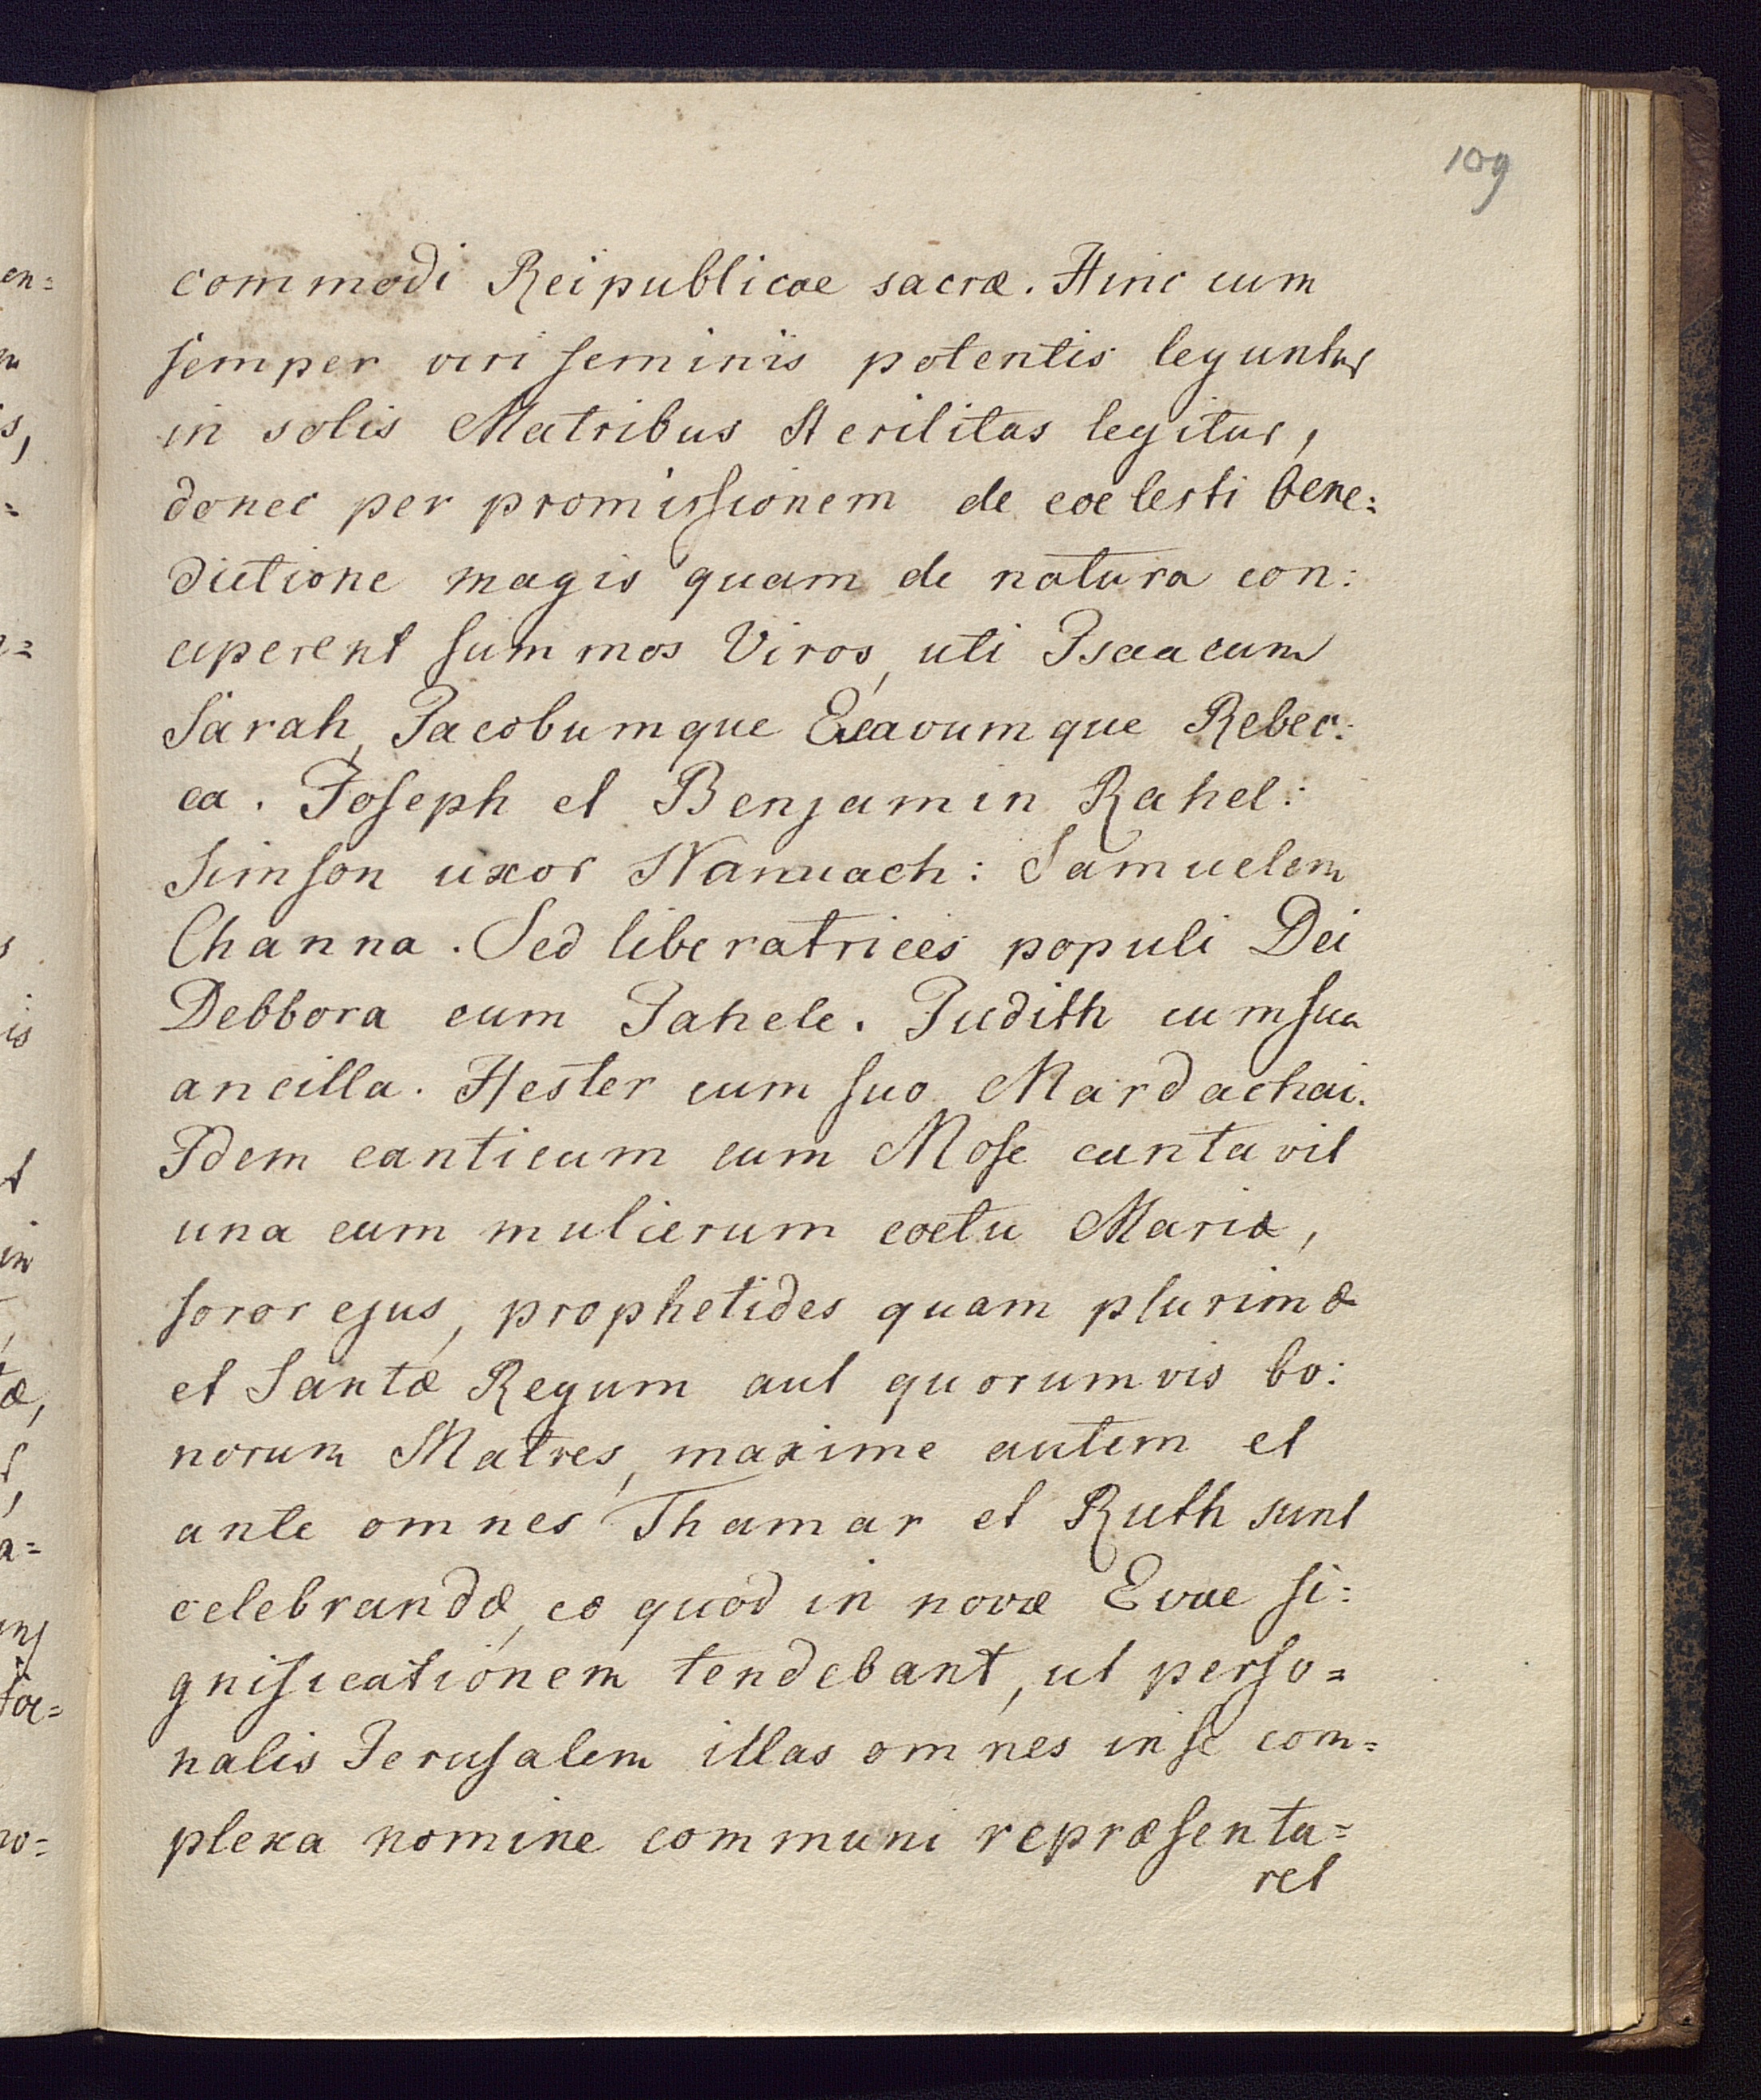 109
commodi Reipublicae sacræ. Hinc cum
semper viri seminis potentis leguntur
in solis Matribus sterilitas legitur,
donec per promissionem de coelesti bene:
dictione magis quam de natura con:
ciperent summos Viros, uti Isaacum
Sarah, Jacobumque Esavumque Rebec:
ca. Joseph et Benjamin Rahel:
Simson uxor Manuach: Samuelem
Channa. Sed liberatrices populi Dei
Debbora cum Jahele. Judith cum sua
ancilla. Hester cum suo Mardachai.
Idem canticum cum Mose cantavit
una cum mulierum coetu Mariæ,
soror ejus, prophetides quam plurimæ
et Santæ Regum aut quorumvis bo:
norum Matres, maxime autem et
ante omnes Thamar et Ruth sunt
celebrandæ, eo quod in novæ Evae si:
gnificationem tendebant, ut perso=
nalis Jerusalem illas omnes in se com=
plexa nomine communi repræsenta=
ret